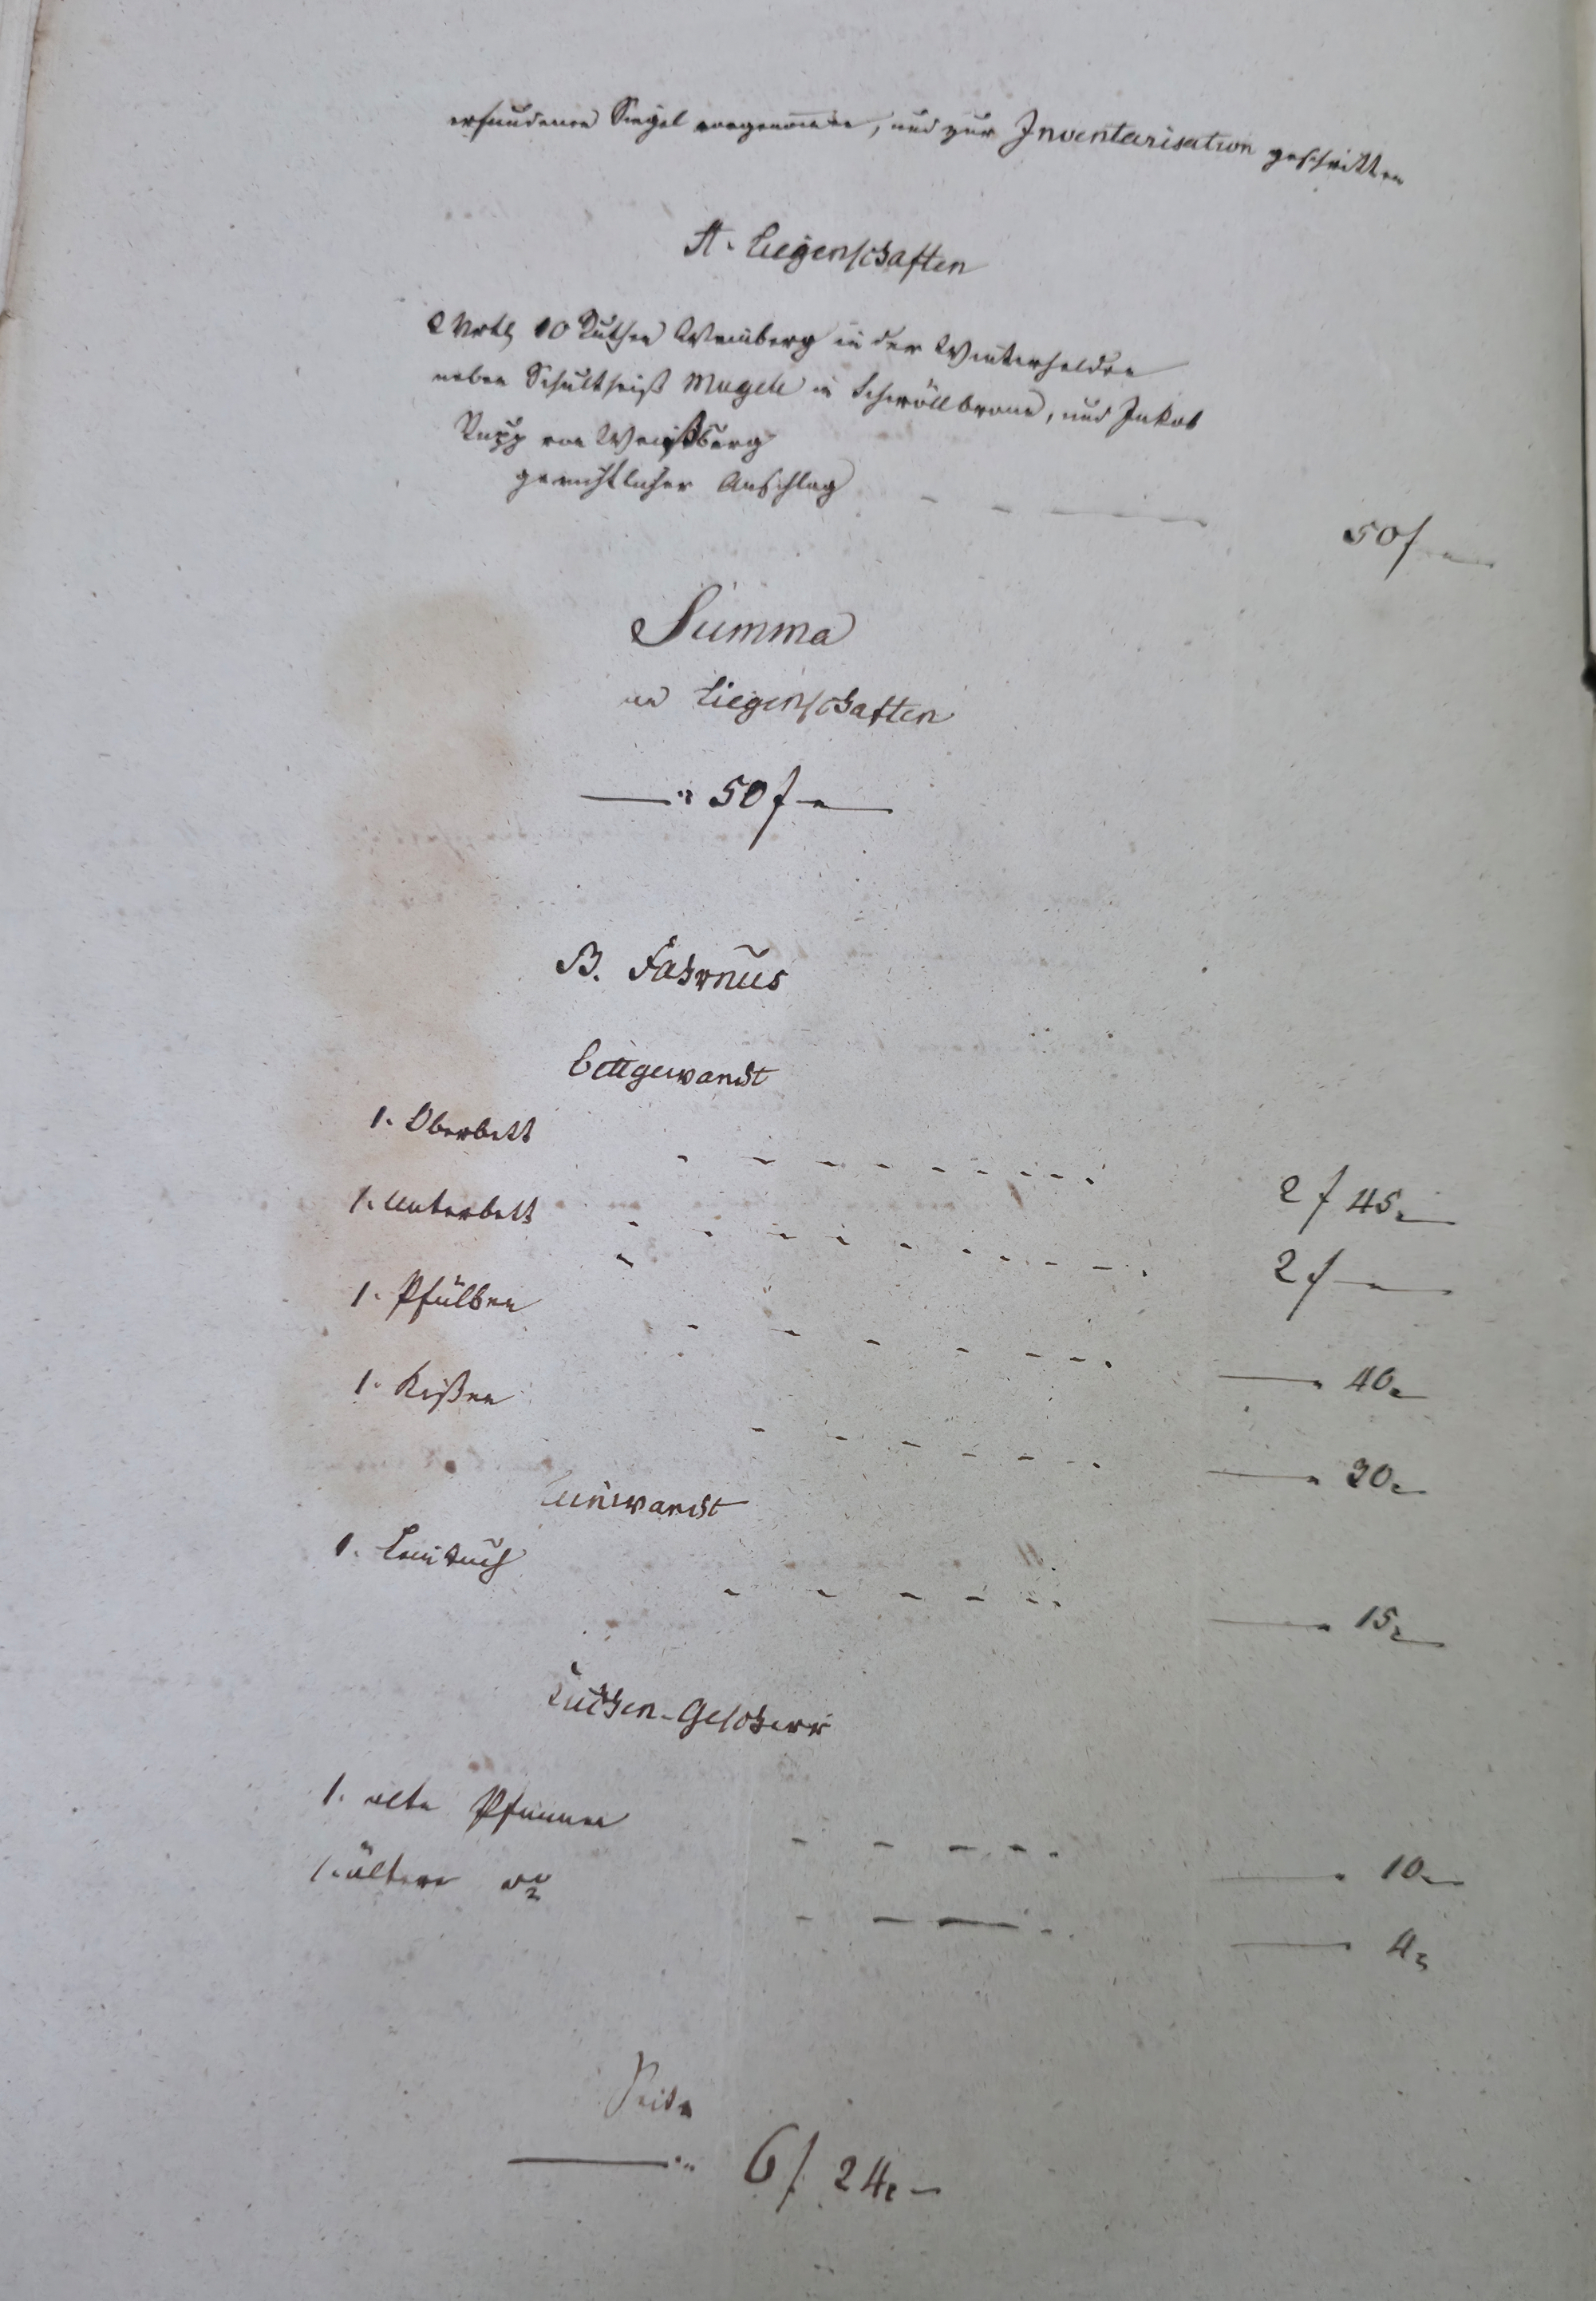 erfundenen Siegel vorgenom̅en, und zur Inventarisation geschritten
A. Liegenschaften
2 Vrtl 10 Ruthen Weinberg in der Winterhelden
neben Schultheiß Mugele in Schwöllbronn, und Jakob
Rupp von Weißberg
gerichtlicher Anschlag - - - 50 f -
Summa
an Liegenschaften
— " 50 f -
B. Fahrnus
Bettgewandt
1. Oberbett - - - - - - - - 2 f 45 -
1. Unterbett - - - - - - - - 2 f -
1. Pfülben - - - - - - - — " 40 -
1. Kißen - - - - - - — " 30 -
Leinwandt
1. Leintuch - - - - - — " 15 -
Kuchen-Geschirr
1. alte Pfannen - - - - - — " 10 -
1. ältere do - - - - — " 4
Seite
— " 6 f 24 -